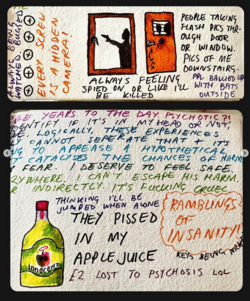 ALWAYS BEING
WATCHED BUGGED
EVERY SCREW
IS A HIDDEN
CAMERA!
PEOPLE TAKING
FLASH PICS THR-
OUGH DOOR
OR WINDOW.
PICS OF ME
DOWNSTAIRS.
PPL BALLIED
WITH BATS
OUTSIDE
ALWAYS FEELING
SPIED ON OR LIKE I'LL
BE KILLED
YEARS TO THE DAY. PSYCHOTIC?!
IDENTIFY IF IT'S IN MY HEAD OR NOT
LOGICALLY, THESE EXPERIENCES
CANNOT SEPARATE THAT & IT'S
TO APPEASE A HYPOTHETICAL
CATALYSES THE CHANCES OF HARM
FEAR. I DESERVE TO FEEL SAFE.
I CAN'T ESCAPE HIS HARM.
INDIRECTLY. IT'S FUCKING CRUEL
THINKING I'LL BE
JUMPED WHEN ALONE
THEY PISSED
IN MY
APPLE JUICE
£2 LOST TO PSYCHOSIS LOL
RAMBLINGS
OF
INSANITY!
KEYS BEING